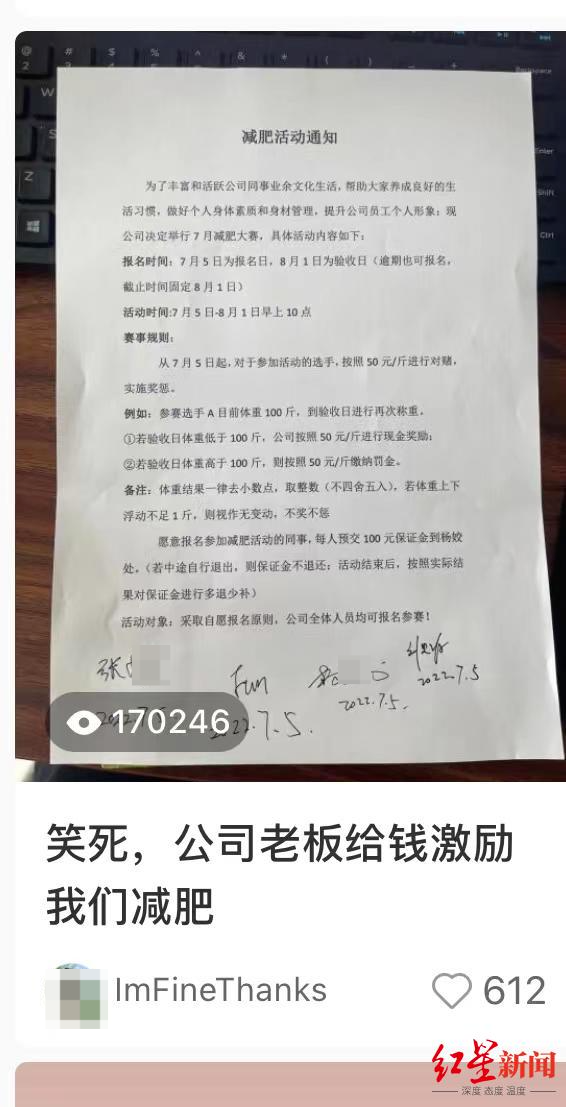 @
#
$
%
^
&
*
(
)
2
W
S
Z
Enter
Shift
Ctrl
减肥活动通知
为了丰富和活跃公司同事业余文化生活，帮助大家养成良好的生
活习惯，做好个人身体素质和身材管理，提升公司员工个人形象；现
公司决定举行7月减肥大赛，具体活动内容如下：
报名时间：7月5日为报名日，8月1日为验收日（逾期也可报名，
截止时间固定8月1日）
活动时间:7月5日-8月1日早上10点
赛事规则：
从7月5日起，对于参加活动的选手，按照50元/斤进行对赌，
实施奖惩。
例如：参赛选手A目前体重100斤，到验收日进行再次称重。
①若验收日体重低于100斤，公司按照50元/斤进行现金奖励；
②若验收日体重高于100斤，则按照50元/斤缴纳罚金。
备注：体重结果一律去小数点，取整数（不四舍五入），若体重上下
浮动不足1斤，则视作无变动，不奖不惩
愿意报名参加减肥活动的同事，每人预交100元保证金到杨姣
处，（若中途自行退出，则保证金不退还；活动结束后，按照实际结
果对保证金进行多退少补）
活动对象：采取自愿报名原则，公司全体人员均可报名参赛！
张
2022.7.5
2022.7.5.
2022.7.5.
170246
笑死，公司老板给钱激励
我们减肥
ImFineThanks
612
红星新闻
深度 态度 温度